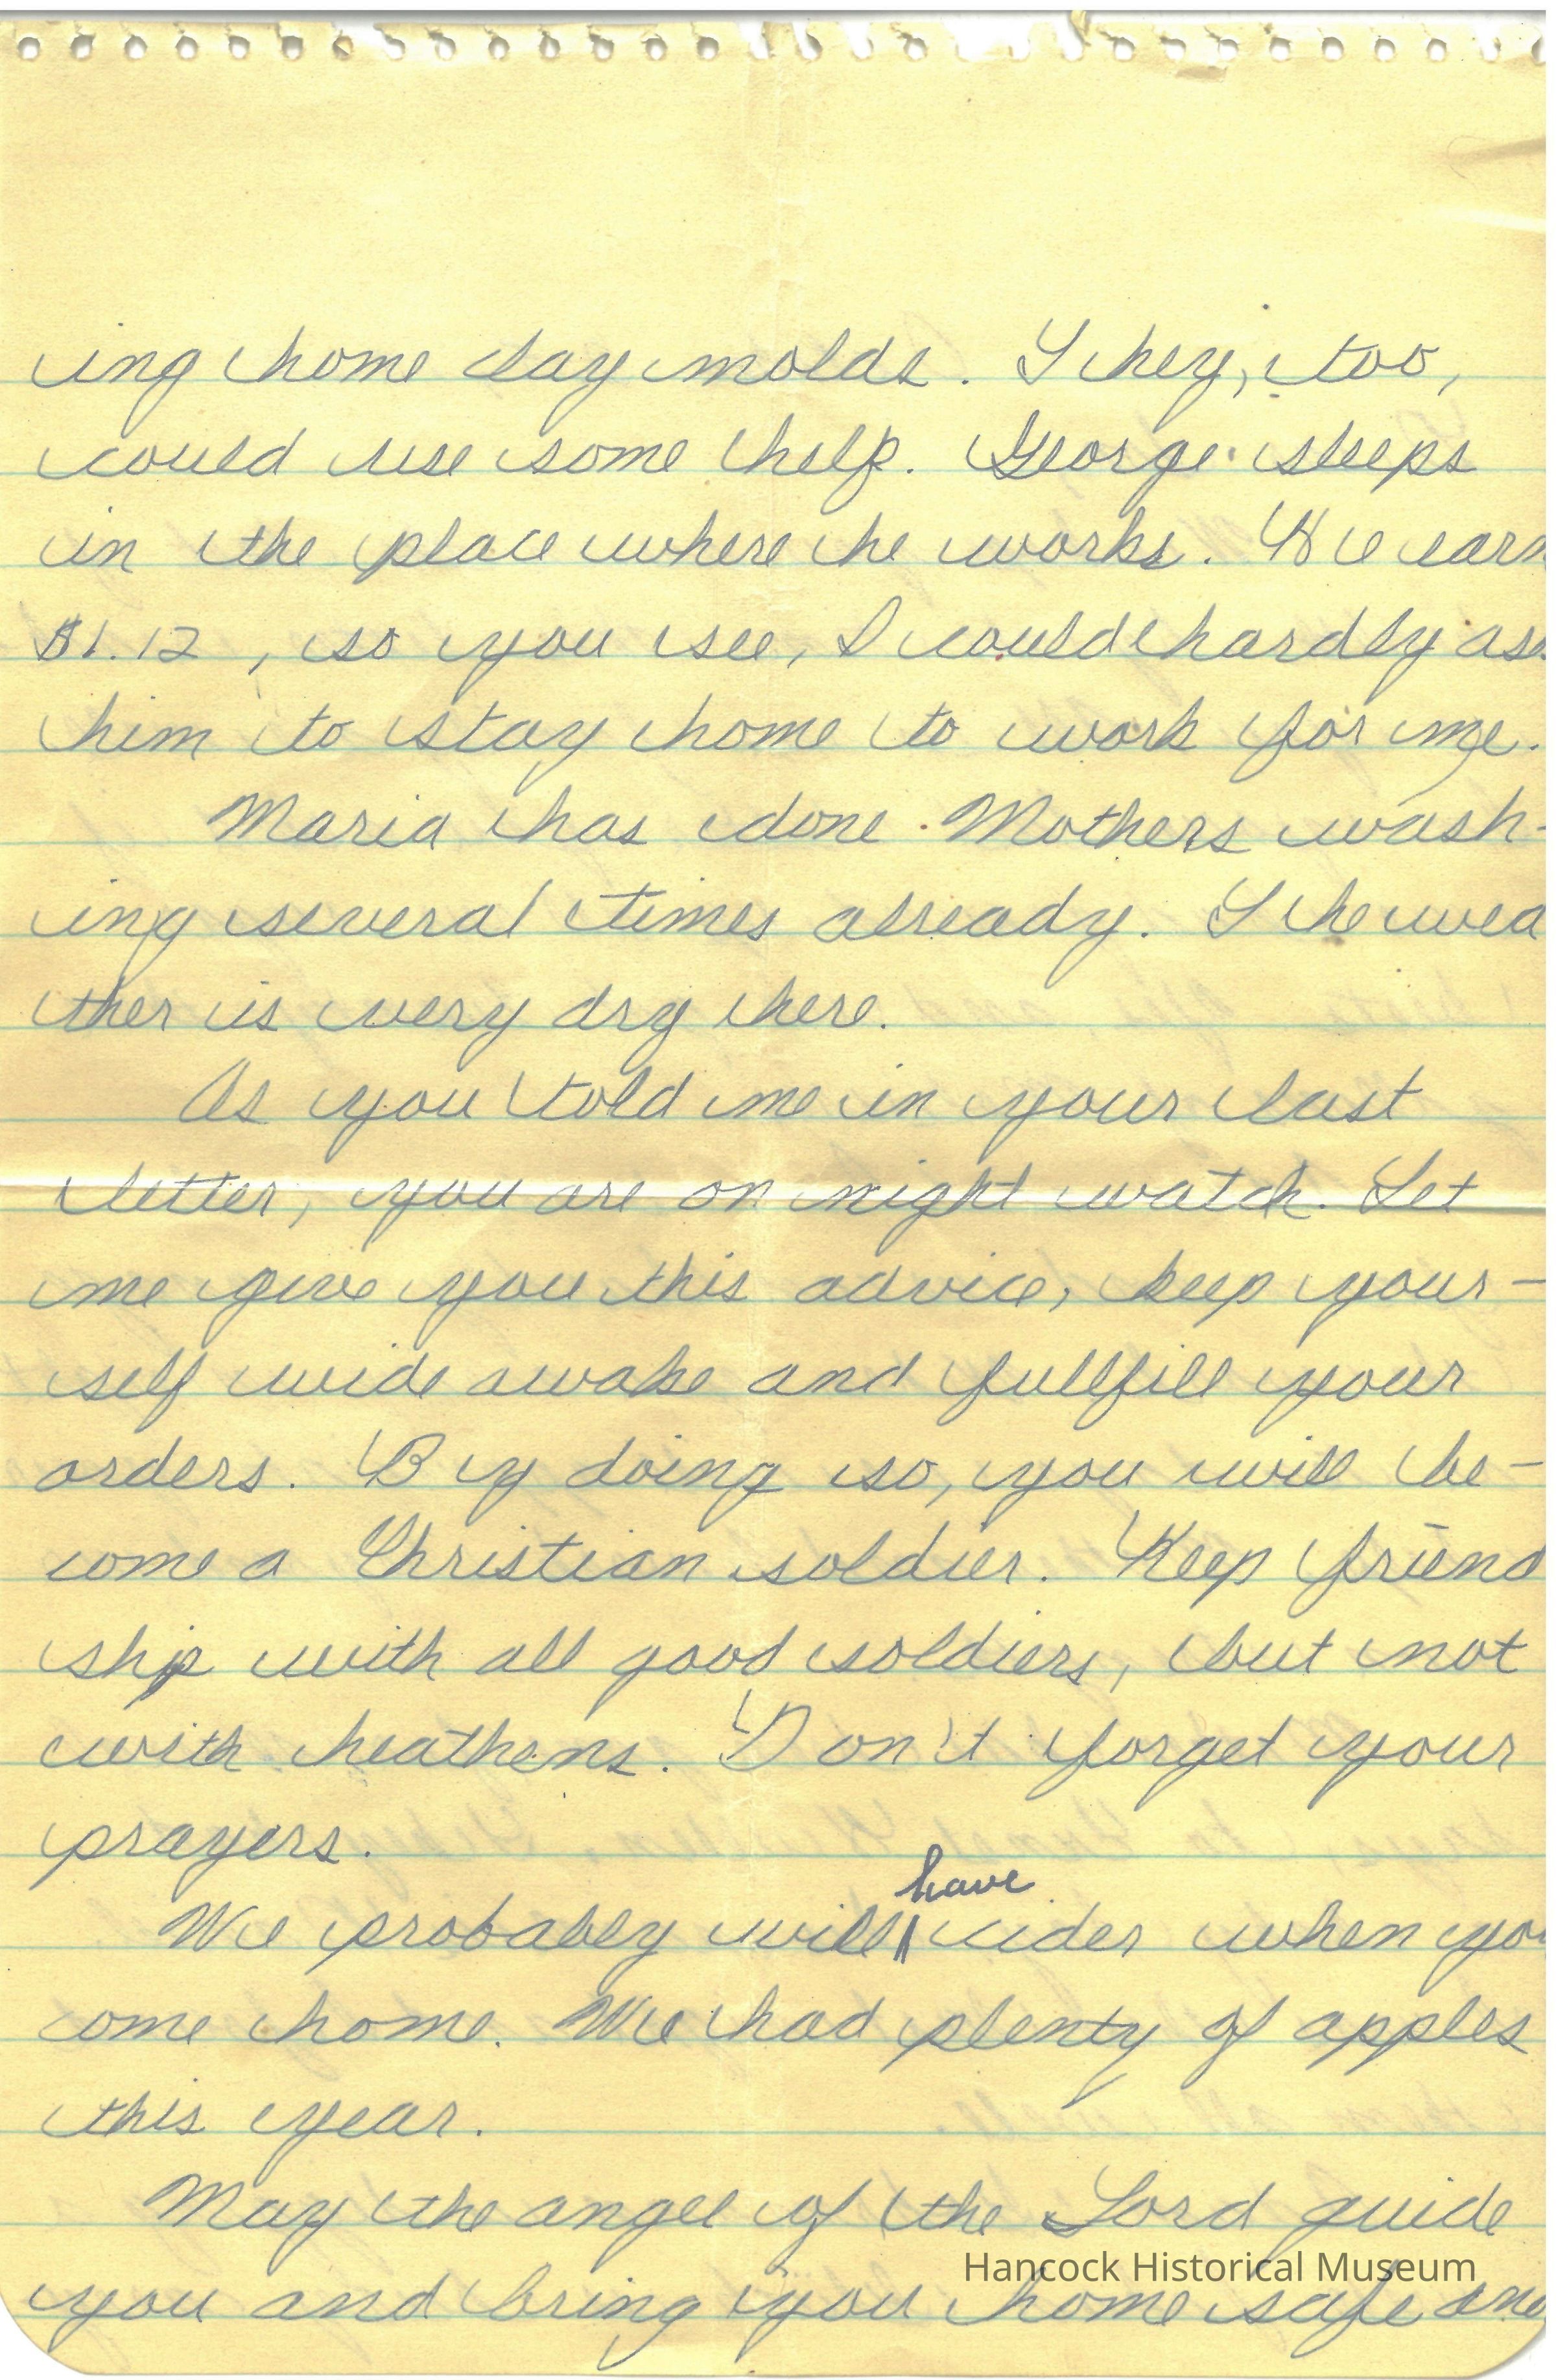 ing home clay molds. They, too,
could use some help. George sleeps
in the place where he works. He earn
$1.12, so you see, I could hardly as
him to stay home to work for me.
Maria has done Mothers wash-
ing several times already. The wea
ther is very dry here.
As you told me in your last
letter, you are on night watch. Let
me give you this advice, keep your-
self wide awake and fullfill your
orders. By doing so, you will be-
come a Christian soldier. Keep friend
ship with all good soldiers, but not
with heathens. Don't forget your
prayers.
We probably will have cider when yo
come home. We had plenty of apples
this year.
May the angel of the Lord guide
Hancock Historical Museum
you and bring you home safe and